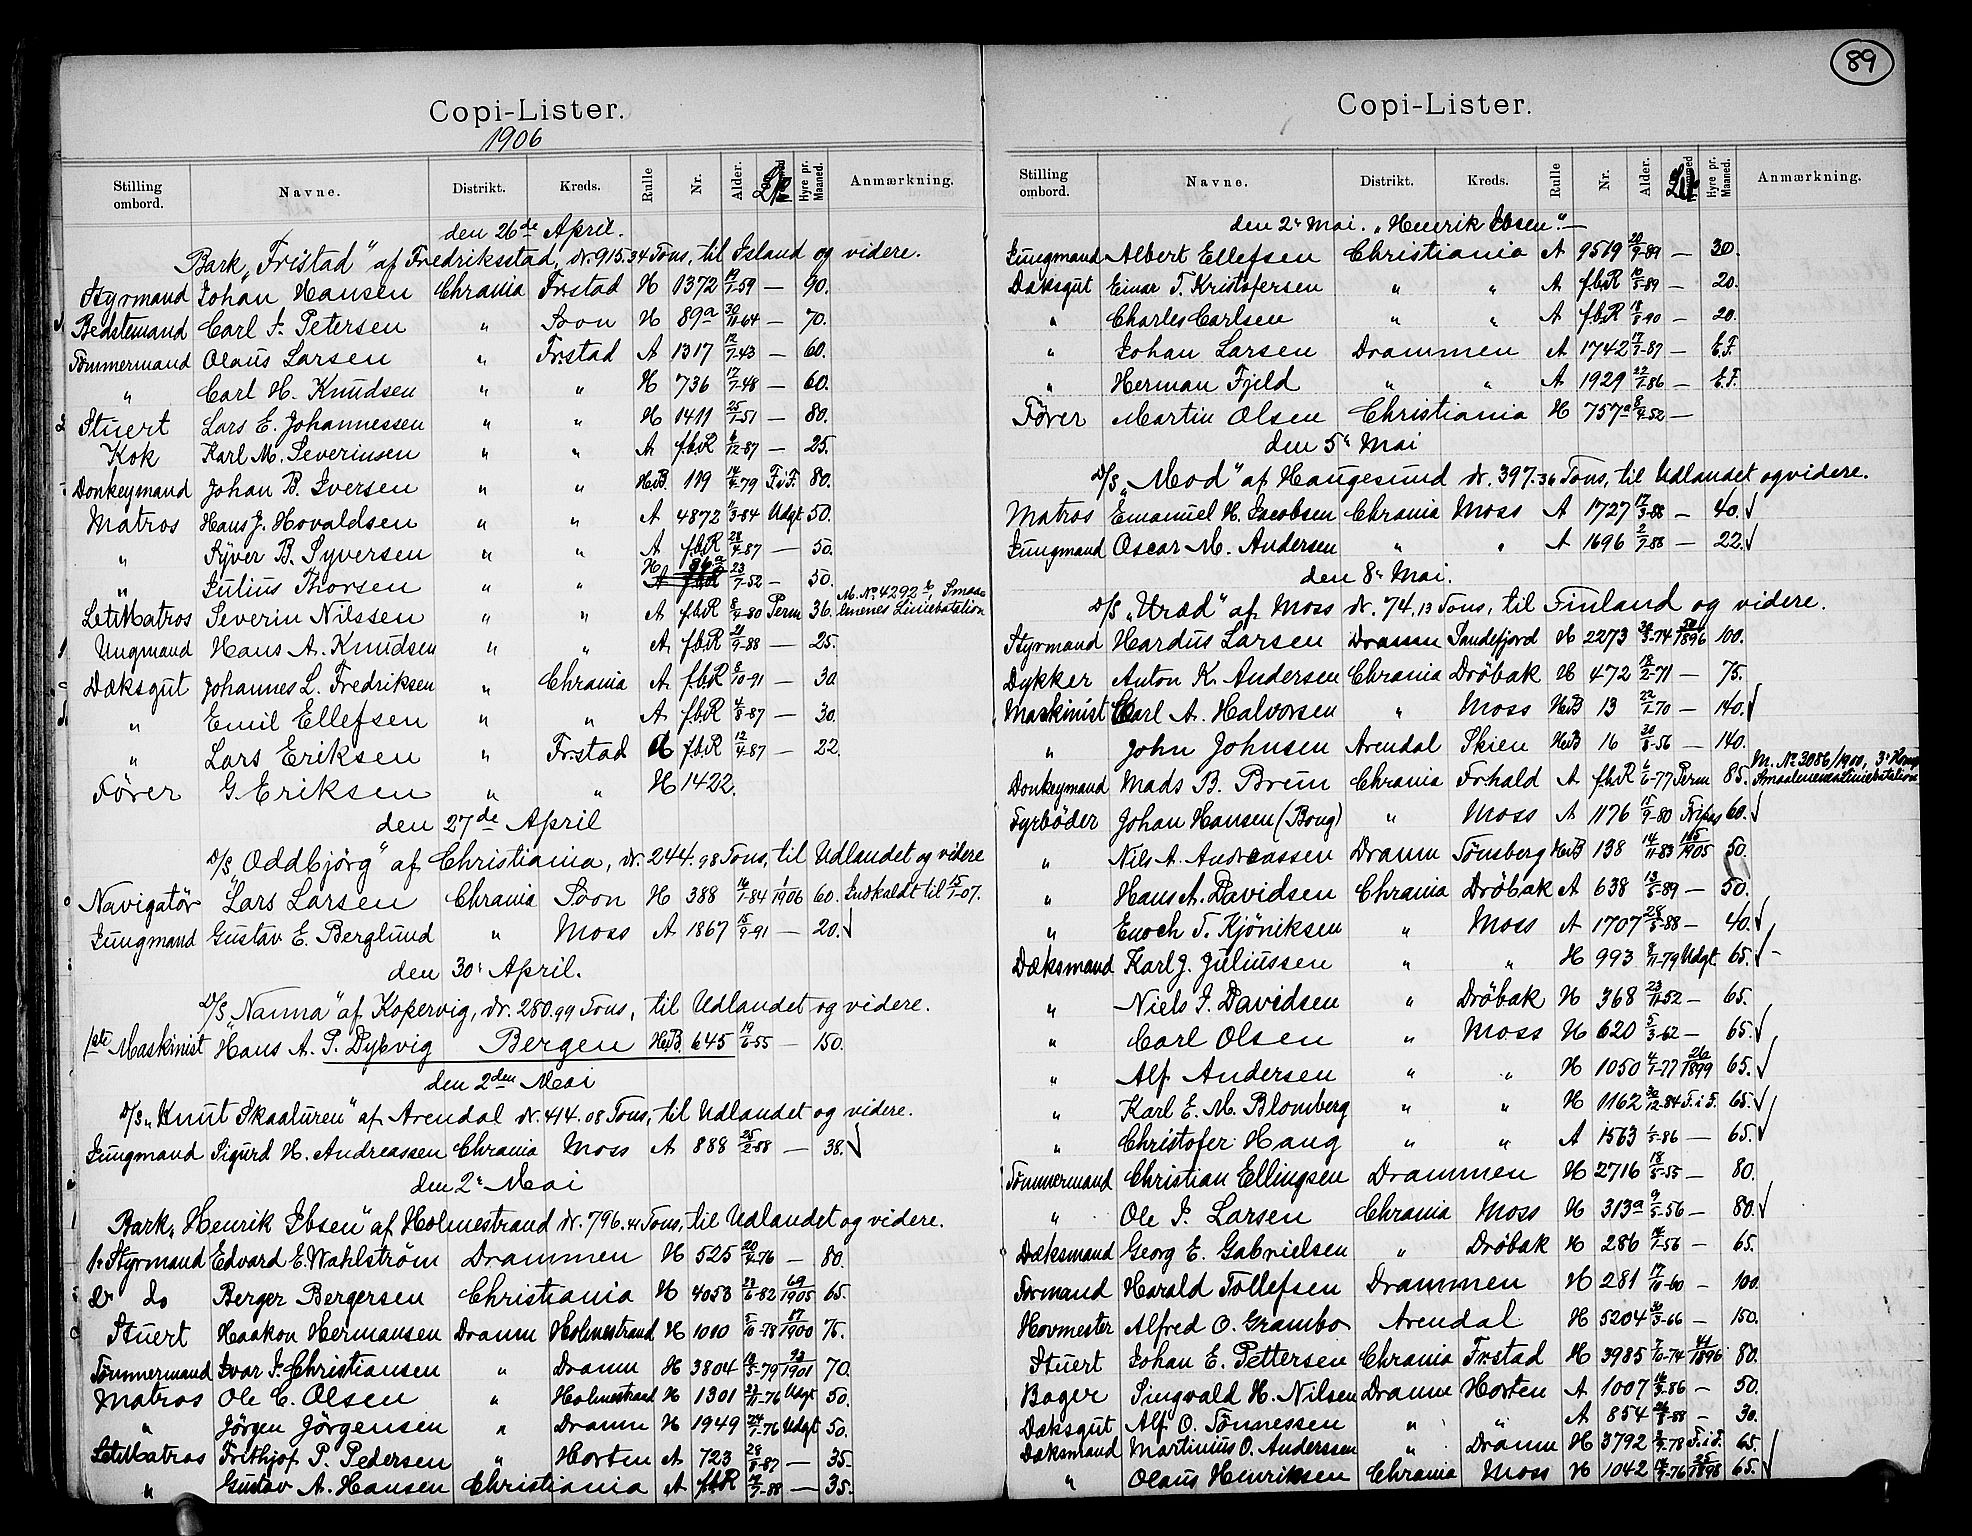 89
Copi-Lister.
1906
Stilling ombord. Navne. Distrikt. Kreds. Rulle Nr. Alder. Hyre pr. Maaned. Anmærkning.
den 26de April.
Bark "Fristad" af Fredriksstad, dr. 915.34 Tons, til Island og videre.
Styrmand Johan Hansen Chrania Fr.stad H 1372 19/1-59 — 90.
Bedstemand Carl F. Petersen " Soon H 89a 30/11-64 — 70.
Tömmermand Olaus Larsen " Fr.stad A 1317 12/7-43 — 60.
" Carl H. Knudsen " " H 736 17/7-48 — 60.
Stuert Lars E. Johannessen " " H 1411 25/1-51 — 80.
Kok Karl M. Severinsen " " A f.b.R 6/12-87 — 25.
Donkeymand Johan B. Iversen " " H.B. 119 14/4-79 F.i.F. 80.
Matros Hans J. Hovaldsen " " A 4872 11/3-84 Udgt 50.
" Syver B. Syversen " " A f.b.R 28/4-87 — 50.
" Julius Thorsen " " H 86a 23/7-52 — 50.
Let.Matros Severin Nilssen " " A f.b.R 8/4-80 Perm 36. M. No. 4292 b, Smaa-
lenenes Liniebatalion
Ungmand Hans A. Knudsen " " A f.b.R 21/9-88 — 25.
Dæksgut Johannes L. Fredriksen " Chrania A f.b.R 8/10-91 — 30
" Emil Ellefsen " " A f.b.R 4/8-87 — 30.
" Lars Eriksen " Fr.stad A f.b.R 12/4-87 — 22.
Förer G. Eriksen " " H 1422.
den 27de April
D/S "Oddbjörg" af Christiania, dr. 244.98 Tons, til Udlandet og videre
Navigatör Lars Larsen Chrania Soon H 388 16/1-84 1/1906 60. Indkaldt til 15/1-07.
Jungmand Gustav E. Berglund " Moss A 1867 15/9-91 — 20.
den 30' April.
D/S "Nanna" af Kopervig, dr. 280.99 Tons, til Udlandet og videre.
1ste Maskinist Hans A. P. Dybvig Bergen H.B. 645 19/6-55 — 150.
den 2den Mai
D/S "Knut Skaaluren" af Arendal dr. 414.08 Tons, til Udlandet og videre.
Jungmand Sigurd H. Andreassen Chrania Moss A 888 25/2-88 — 38.
den 2' Mai
Bark "Henrik Ibsen" af Holmestrand dr. 796.41 Tons, til Udlandet og videre.
1' Styrmand Edvard E. Wahlström Drammen H 525 20/4-76 — 80.
2' do Berger Bergersen Christiania H 4053 23/6-82 69/1905 65.
Stuert Haakon Hermansen Dramn Holmestrand H 1010 5/10-78 17/1900 75.
Tömmermand Ivar J. Christiansen " Dramn H 3804 18/5-79 93/1901 70.
Matros Ole C. Olsen " Holmestrand H 1301 23/11-76 Udgt 50.
" Jörgen Jörgensen " Dramn H 1949 24/7-76 Udgt 50.
Let.Matros Frithjof P. Pedersen " Horten A 723 28/8-87 — 35.
" Gustav A. Hansen Christiania A f.b.R 12/7-88 — 35.
Copi-Lister.
Stilling ombord. Navne. Distrikt. Kreds. Rulle Nr. Alder. Hyre pr. Maaned. Anmærkning.
den 2' Mai. "Henrik Ibsen". —
Jungmand Albert Ellefsen Christiania A 9519 20/9-89 — 30.
Dæksgut Einar T. Kristofersen " " A f.b.R 10/5-89 — 20.
" Charles Carlsen " " A f.b.R 18/8-90 — 20.
" Johan Larsen Drammen A 1742 17/7-87 — E.F.
" Herman Fjeld " " A 1929 22/7-86 — E.F.
Förer Martin Olsen Christiania H 757a 8/4-52 —
den 5' Mai
D/S "Mod" af Haugesund dr. 397.36 Tons, til Udlandet og videre.
Matros Emanuel H. Jacobsen Chrania Moss A 1727 17/3-88 — 40.
Jungmand Oscar M. Andersen " " A 1696 2/7-88 — 22.
den 8' Mai.
D/S "Uræd" af Moss dr. 74.13 Tons, til Finland og videre.
Styrmand Hardus Larsen Dramn Sandefjord H 2273 30/3-74 50/1896 100.
Dykker Anton K. Andersen Chrania Dröbak H 472 18/2-71 — 75.
Maskinist Carl A. Halvorsen " Moss H.B 13 22/1-70 — 140.
" John Johnsen Arendal Skien H.B 16 30/8-56 — 140.
Donkeymand Mads B. Brun Chrania Fr.hald A f.b.R 6/6-77 Perm 85. M. No 3086/1900, 3' Komp
Smaalenenes Liniebatalion
Fyrböder Johan Hansen (Boug) " Moss A 1176 15/9-80 60.
" Nils A. Andreassen Dramn Tönsberg H.B 138 14/11-83 165/1905 50.
" Hans A. Davidsen Chrania Dröbak A 638 13/5-89 — 50.
" Enoch T. Kjöniksen " Moss A 1707 28/5-88 — 40.
Dæksmand Karl J. Juliussen " " H 993 8/11-79 Udgt 65. –
" Niels J. Davidsen " Dröbak H 368 23/11-52 — 65.
" Carl Olsen " Moss H 620 5/3-62 — 65.
" Alf Andersen " " H 1050 4/1-77 26/1899 65.
" Karl E. M. Blomberg " " H 1162 30/12-84 F.i.F. 65.
" Christofer Haug " " A 1563 1/5-86 — 65.
Tömmermand Christian Ellingsen Drammen H 2716 18/5-55 — 80.
" Ole J. Larsen Chrania Moss H 313a 9/5-56 — 80.
Dæksmand Georg E. Gabrielsen " Dröbak H 286 14/1-56 — 65.
Formand Harald Tollefsen Drammen H 281 17/10-60 — 100.
Hovmester Alfred O. Grambo Arendal H 5204 30/3-66 — 150.
Stuert Johan E. Pettersen Chrania Fr.stad H 3985 7/10-74 44/1896 80.
Bager Singvald H. Nilsen Dramn Horten A 1007 16/3-86 — 50.
Dæksgut Alf O. Tönnessen " " A 854 26/8-88 — 30.
Dæksmand Martinius O. Anderssen " Dramn H 3792 2/7-78 F.i.F. 65.
" Olaus Henriksen Chrania Moss H 1042 18/7-76 32/1898 65.